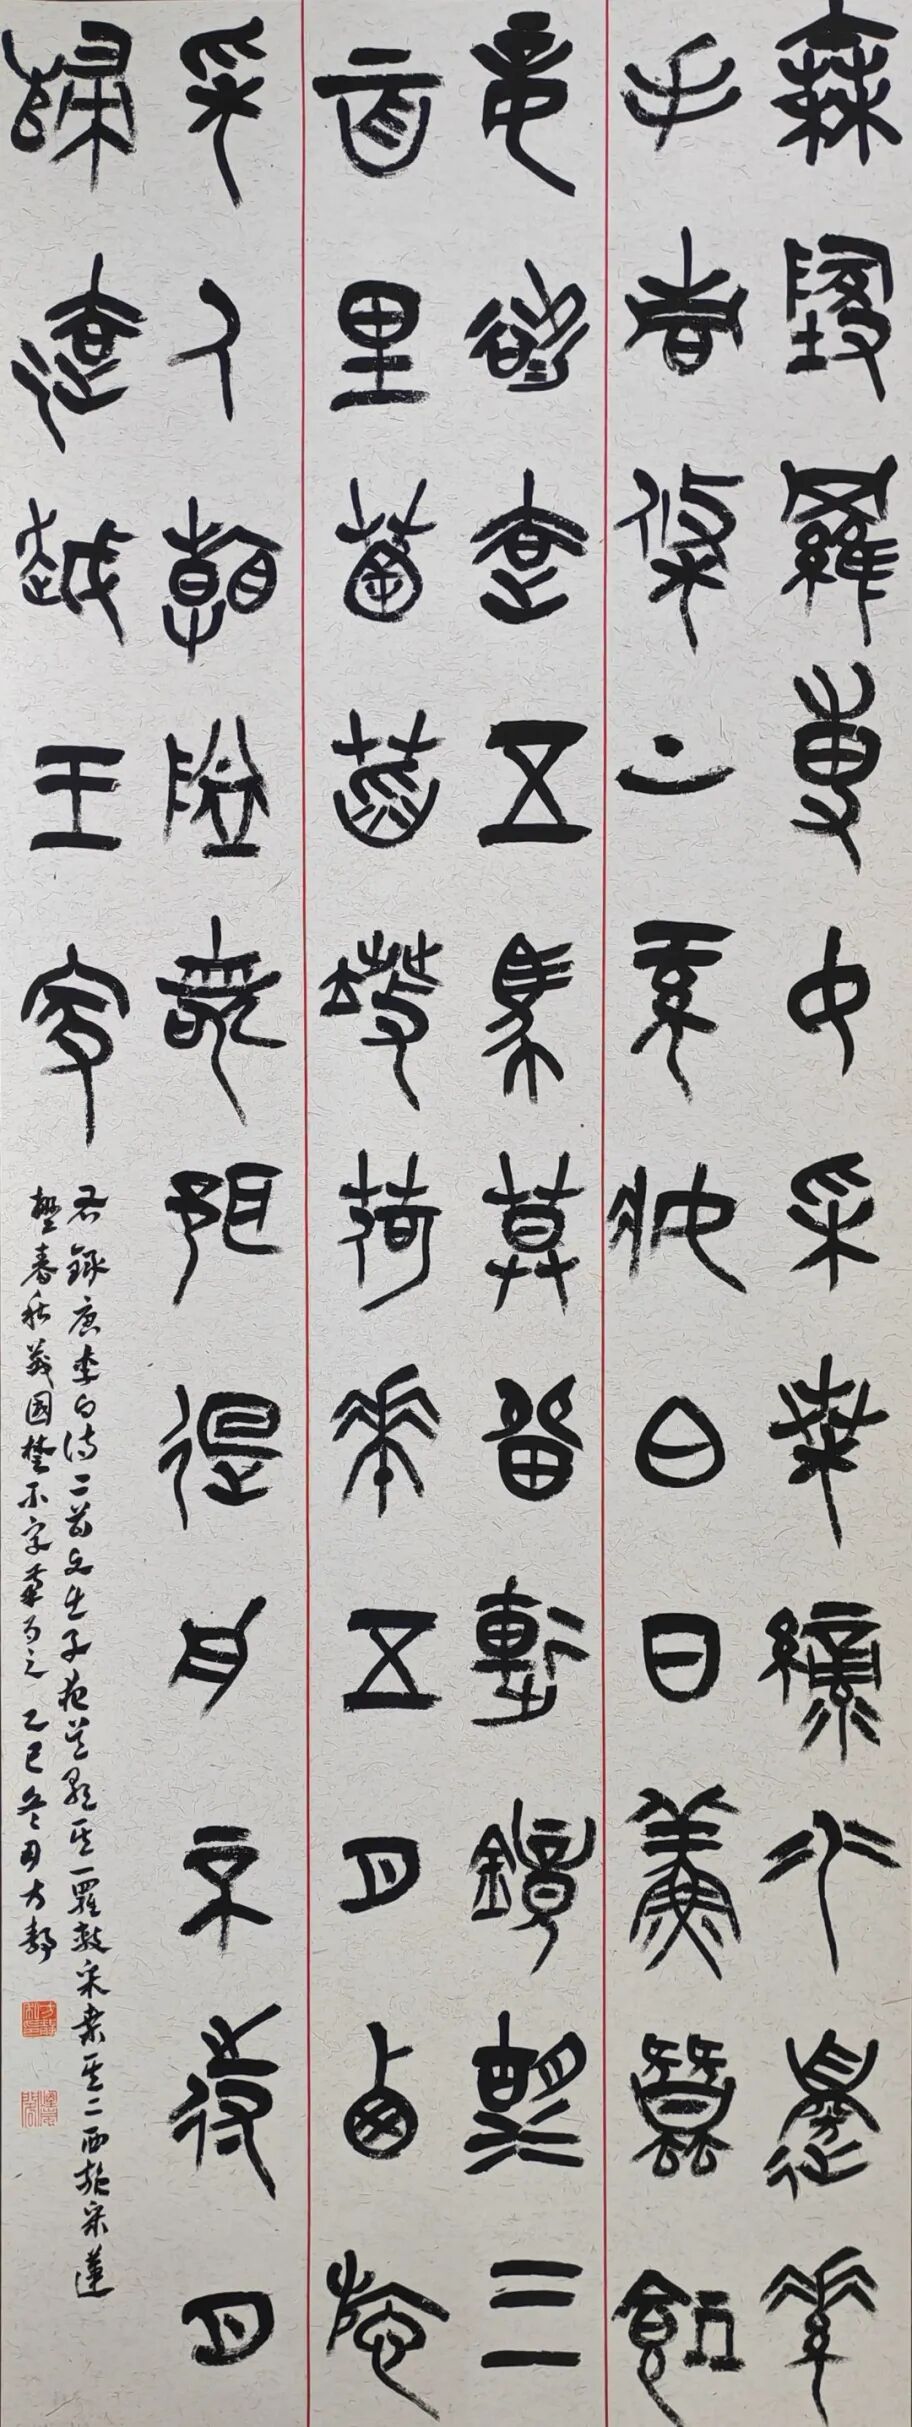 秦地羅敷女采桑綠水邊素
手青條上紅妝白日鮮蠶飢
妾欲去五馬莫留連鏡湖三
百里菡萏發荷花五月西施
采人看隘若耶回舟不待月
歸去越王家
右錄唐李白詩二首文出子夜吳歌其一羅敷采桑其二西施采蓮
春秋戰國楚系字為之乙巳冬月方靜